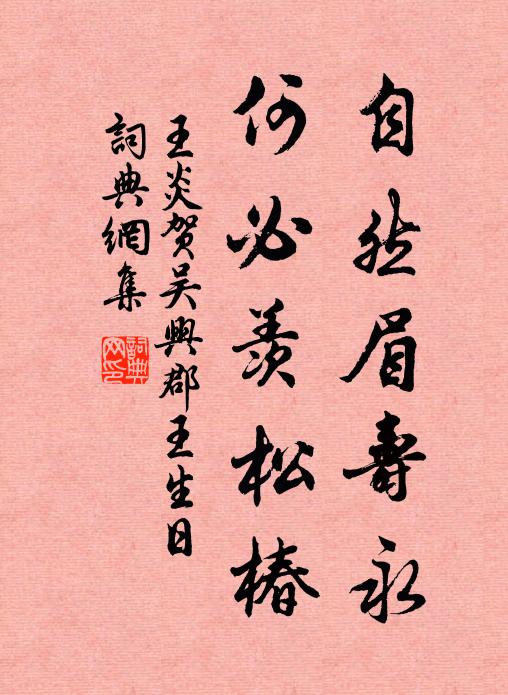 自然眉壽永
何必羨松椿
王炎賀吴興郡王生日
詞典網集
詞典网印